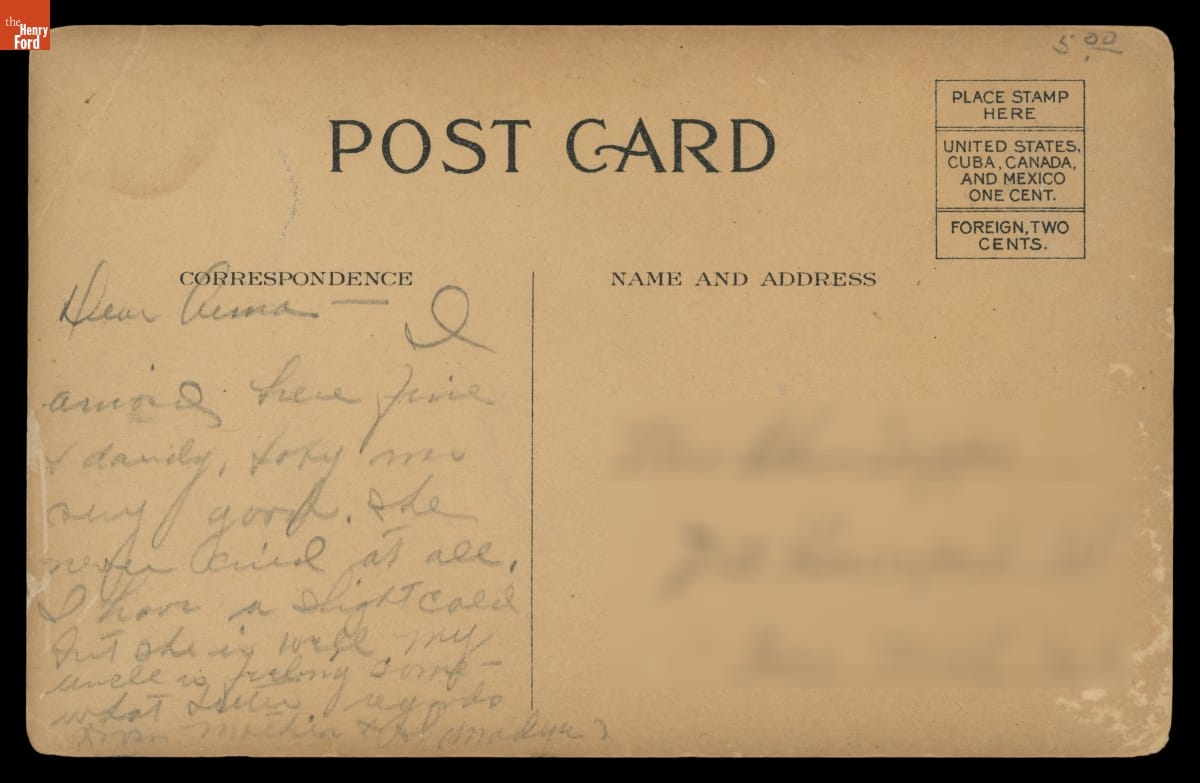 the
Henry
Ford
5.00
POST CARD
PLACE STAMP
HERE
UNITED STATES,
CUBA, CANADA,
AND MEXICO
ONE CENT.
FOREIGN, TWO
CENTS.
CORRESPONDENCE
NAME AND ADDRESS
Dear — I
arrived here fine
& dandy, was
very good. She
never cried at all.
I have a slight cold
but she is well My
uncle is feeling some-
what better regards
from Mother &